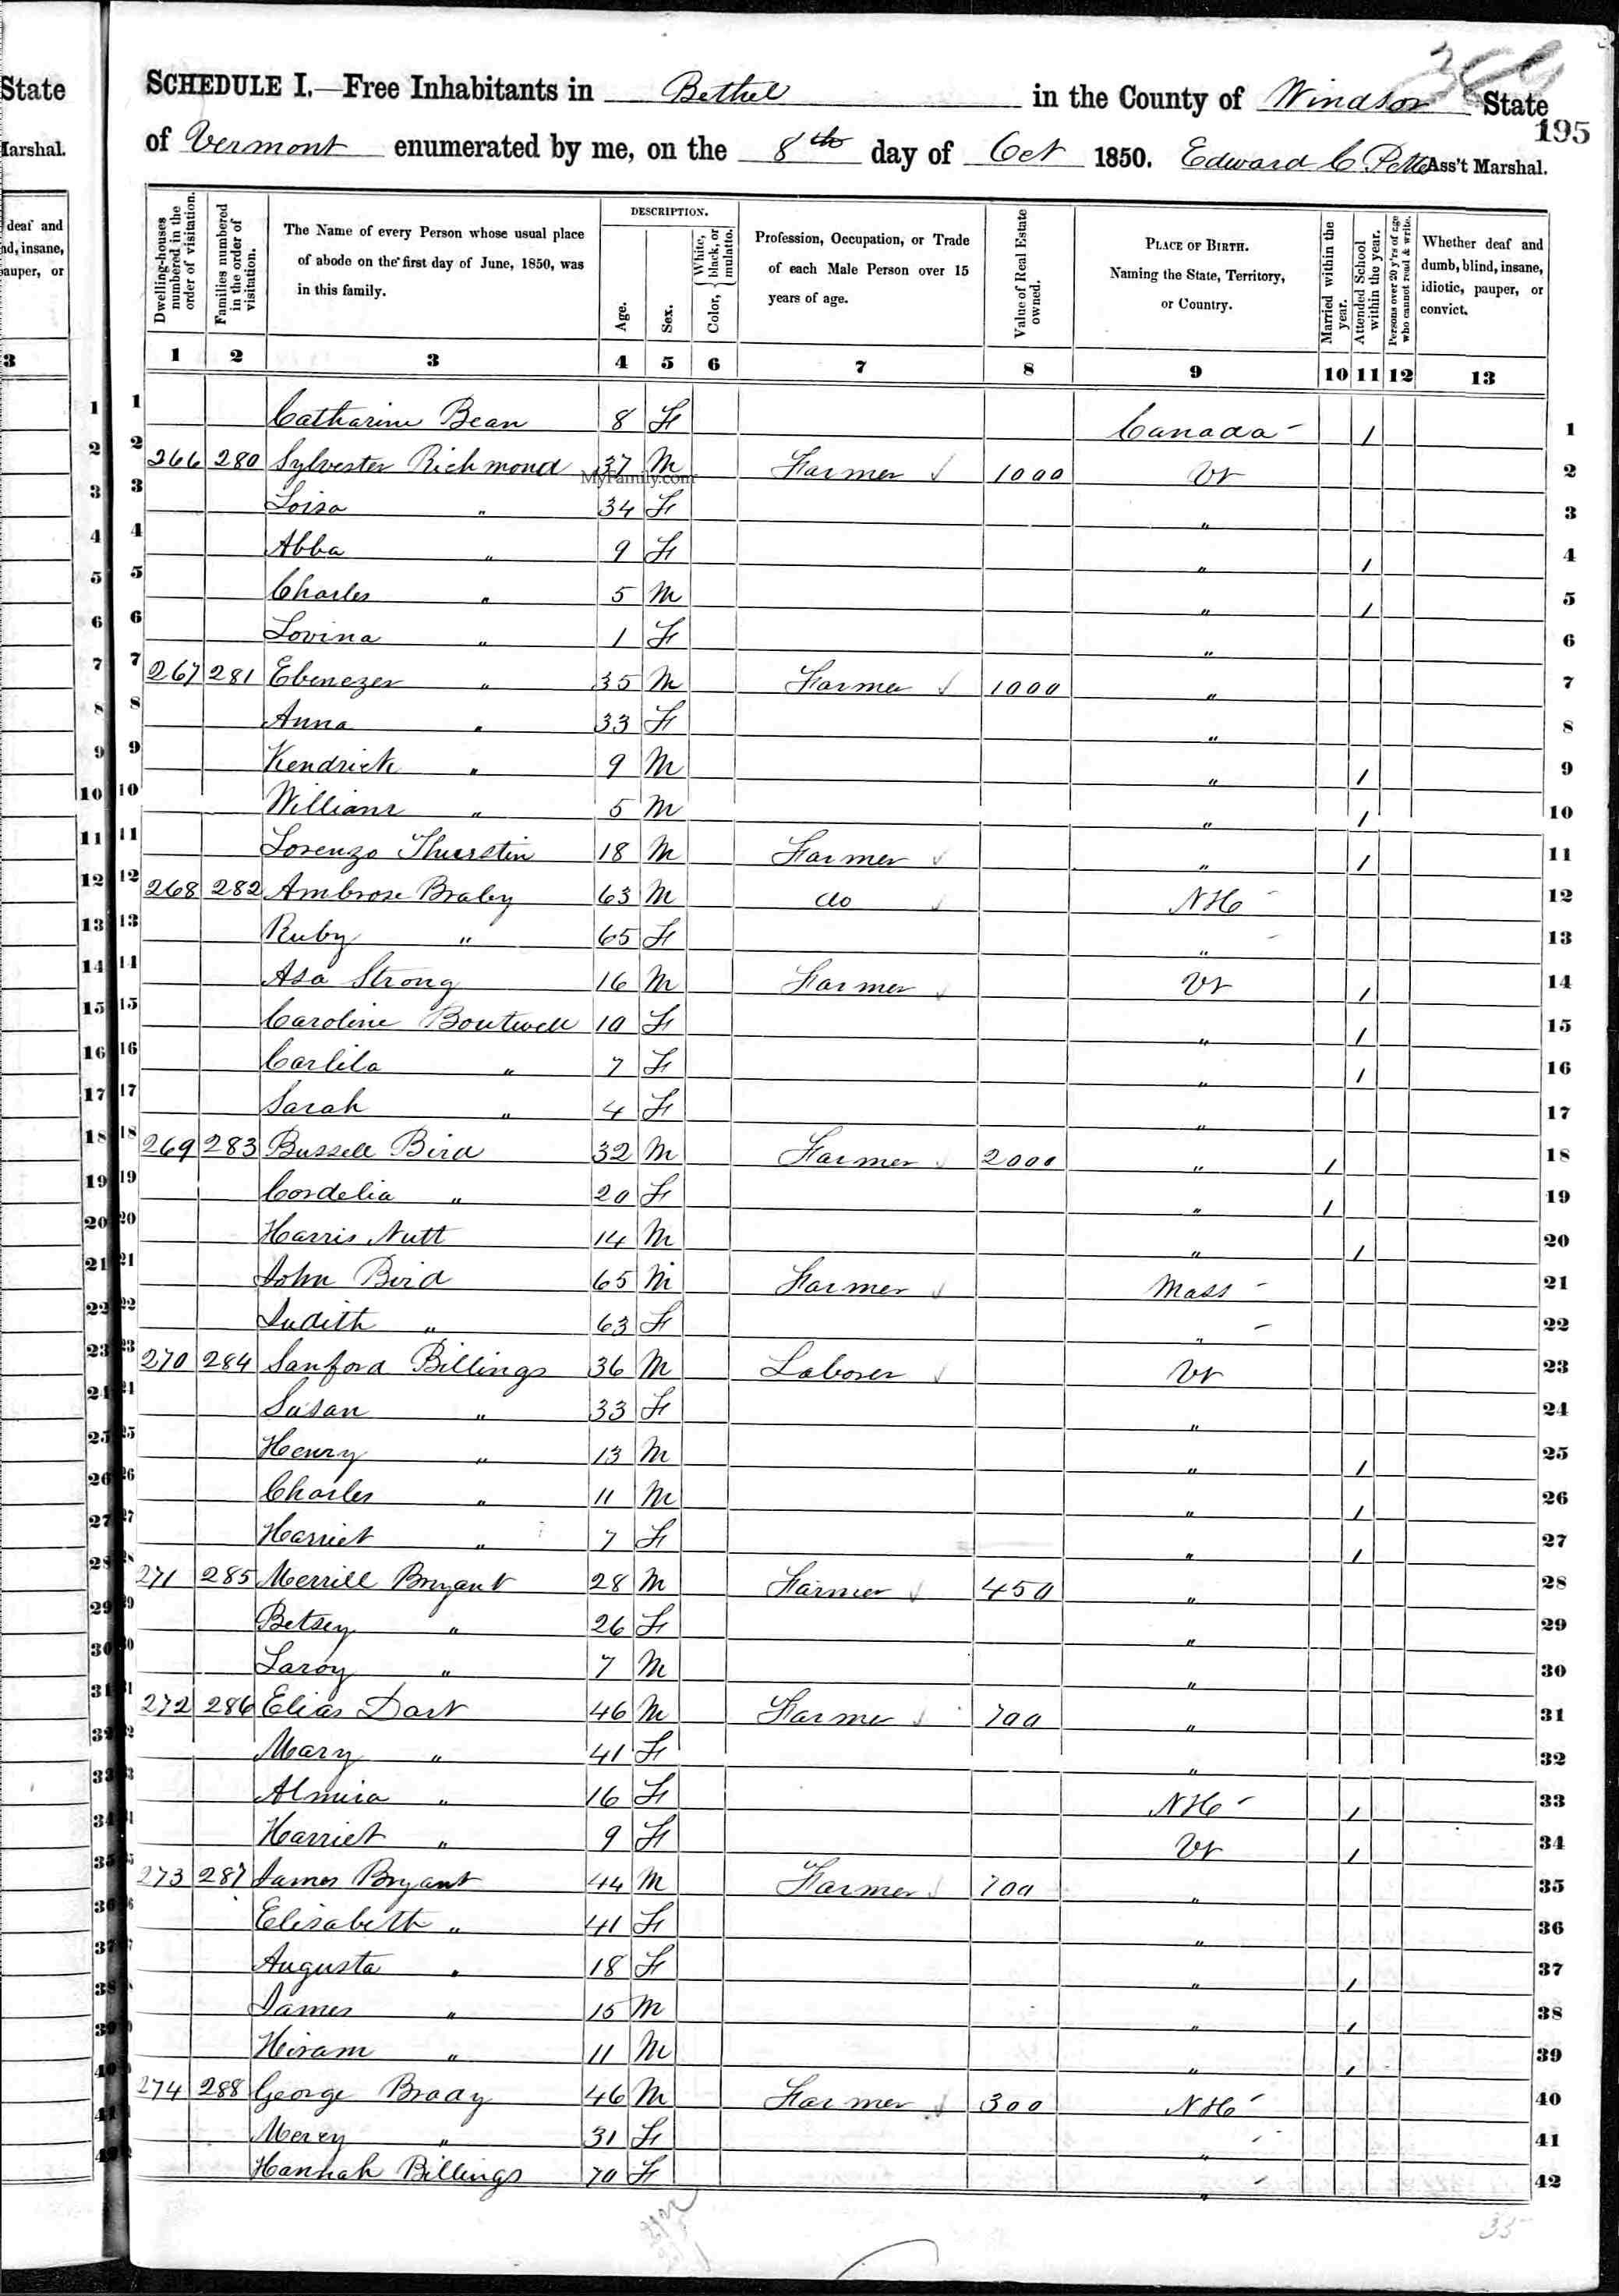 State
Marshal.
deaf and
ad, insane,
pauper, or
3
SCHEDULE I.—Free Inhabitants in Bethel in the County of Windsor State
195
of Vermont enumerated by me, on the 8th day of Oct 1850. Edward C Ass't Marshal.
Dwelling-houses numbered in the order of visitation.
Families numbered in the order of visitation.
The Name of every Person whose usual place of abode on the first day of June, 1850, was in this family.
DESCRIPTION.
Age.
Sex.
Color, { White, black, or mulatto.
Profession, Occupation, or Trade of each Male Person over 15 years of age.
Value of Real Estate owned.
PLACE OF BIRTH. Naming the State, Territory, or Country.
Married within the year.
Attended School within the year.
Persons over 20 y'rs of age who cannot read & write.
Whether deaf and dumb, blind, insane, idiotic, pauper, or convict.
1 2 3 4 5 6 7 8 9 10 11 12 13
1 Catharine Bean 8 F Canada 1 1
2 266 280 Sylvester Richmond 37 M Farmer 1000 Vt 2
MyFamily.com
3 Loisa " 34 F " 3
4 Abba " 9 F " 1 4
5 Charles " 5 M " 1 5
6 Lovina " 1 F " 6
7 267 281 Ebenezer " 35 M Farmer 1000 " 7
8 Anna " 33 F " 8
9 Kendrick " 9 M " 1 9
10 William " 5 M " 1 10
11 Lorenzo Thurstin 18 M Farmer " 1 11
12 268 282 Ambrose Braley 63 M do NH 12
13 Ruby " 65 F " 13
14 Asa Strong 16 M Farmer Vt 1 14
15 Caroline Boutwell 10 F " 1 15
16 Carlila " 7 F " 1 16
17 Sarah " 4 F " 17
18 269 283 Russell Bird 32 M Farmer 2000 " 1 18
19 Cordelia " 20 F " 1 19
20 Harris Nutt 14 M " 1 20
21 John Bird 65 M Farmer Mass 21
22 Judith " 63 F " 22
23 270 284 Sanford Billings 36 M Laborer Vt 23
24 Susan " 33 F " 24
25 Henry " 13 M " 1 25
26 Charles " 11 M " 1 26
27 Harriet " 7 F " 1 27
28 271 285 Merrill Bryant 28 M Farmer 450 " 28
29 Betsey " 26 F " 29
30 Laroy " 7 M " 30
31 272 286 Elias Dart 46 M Farmer 700 " 31
32 Mary " 41 F " 32
33 Almira " 16 F NH 1 33
34 Harriet " 9 F Vt 1 34
35 273 287 James Bryant 44 M Farmer 700 " 35
36 Elisabeth " 41 F " 36
37 Augusta " 18 F " 1 37
38 James " 15 M " 1 38
39 Hiram " 11 M " 1 39
40 274 288 George Brady 46 M Farmer 300 NH 40
41 Mercy " 31 F " 41
42 Hannah Billings 70 F " 42
35